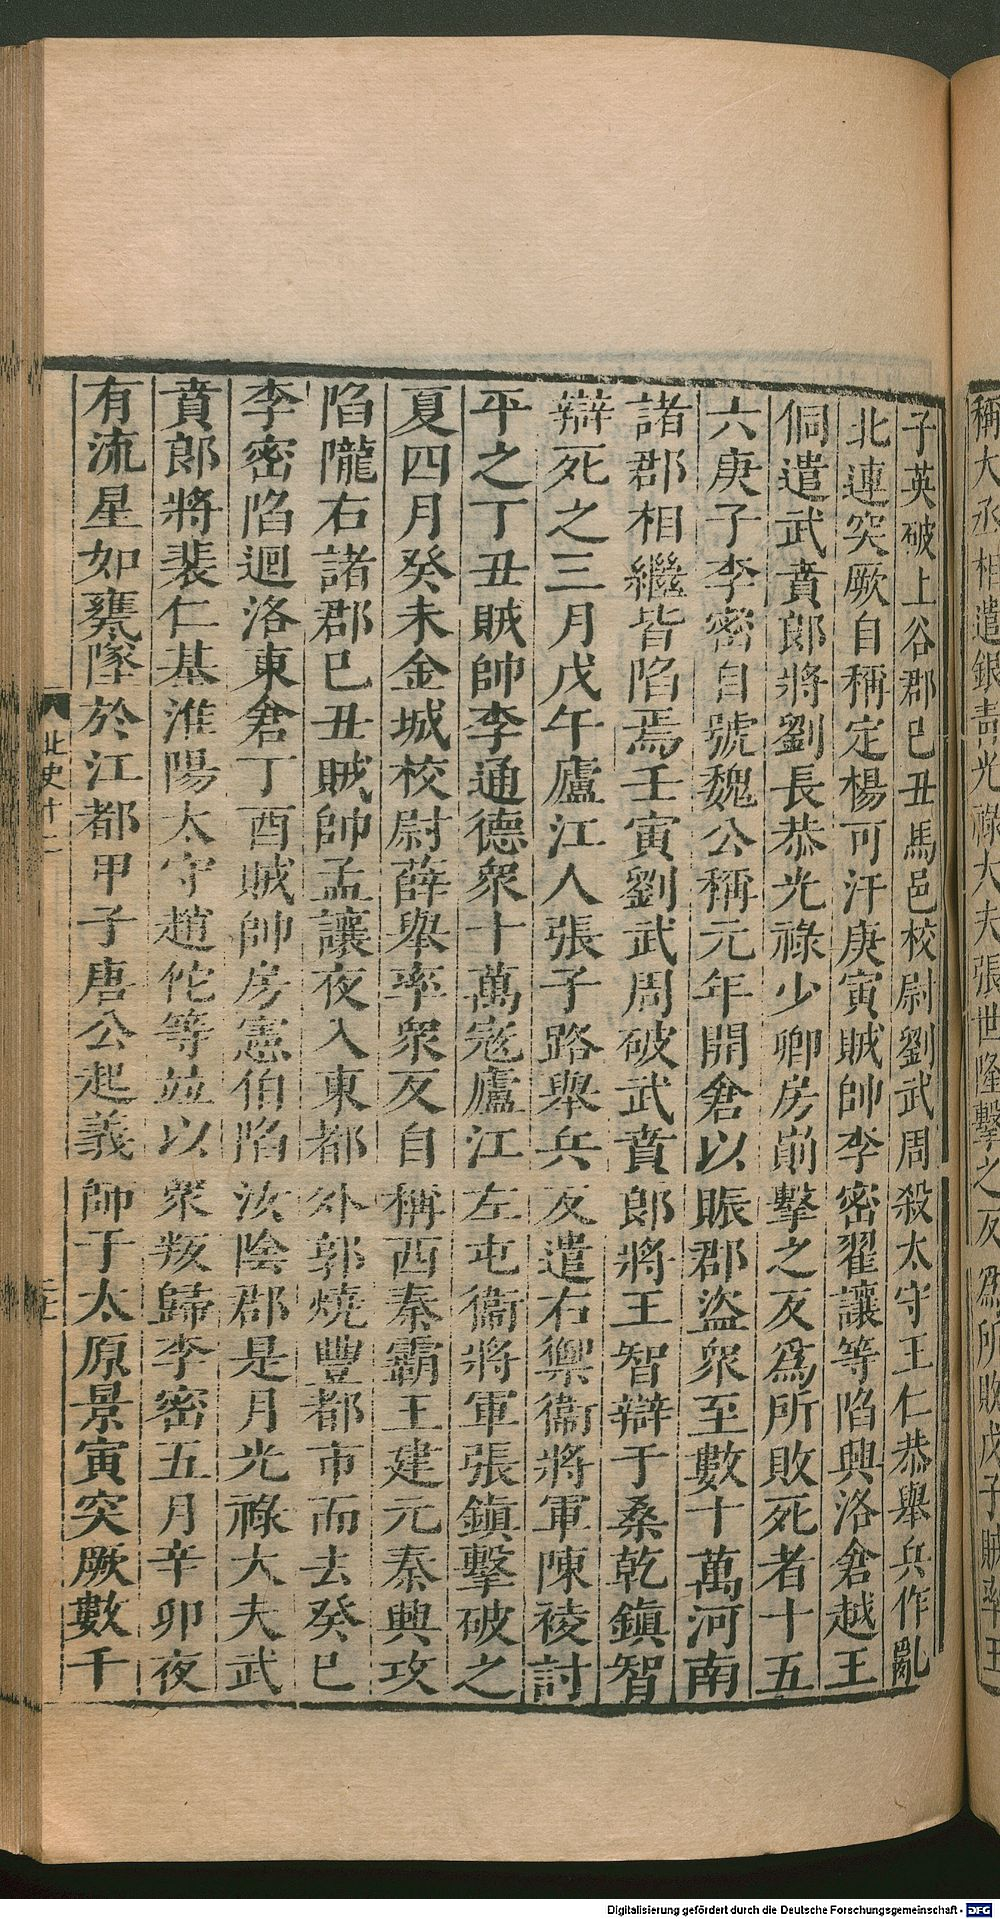 稱大丞相遣銀青光祿大夫張世隆擊之反爲所敗戊子賊率王
子英破上谷郡巳丑馬邑校尉劉武周殺太守王仁恭舉兵作亂
北連突厥自稱定楊可汗庚寅賊帥李密翟讓等陷興洛倉越王
侗遣武賁郎將劉長恭光祿少卿房崱擊之反爲所敗死者十五
六庚子李密自號魏公稱元年開倉以賑郡盜衆至數十萬河南
諸郡相繼皆陷焉壬寅劉武周破武賁郎將王智辯于桑乾鎮智
辯死之三月戊午廬江人張子路舉兵反遣右禦衞將軍陳稜討
平之丁丑賊帥李通德衆十萬寇廬江左屯衞將軍張鎮擊破之
夏四月癸未金城校尉薛舉率衆反自稱西秦霸王建元秦興攻
陷隴右諸郡巳丑賊帥孟讓夜入東都外郭燒豐都市而去癸巳
李密陷迴洛東倉丁酉賊帥房憲伯陷汝陰郡是月光祿大夫武
賁郎將裴仁基淮陽太守趙佗等竝以衆叛歸李密五月辛卯夜
有流星如甕墜於江都甲子唐公起義師于太原景寅突厥數千
北史十二